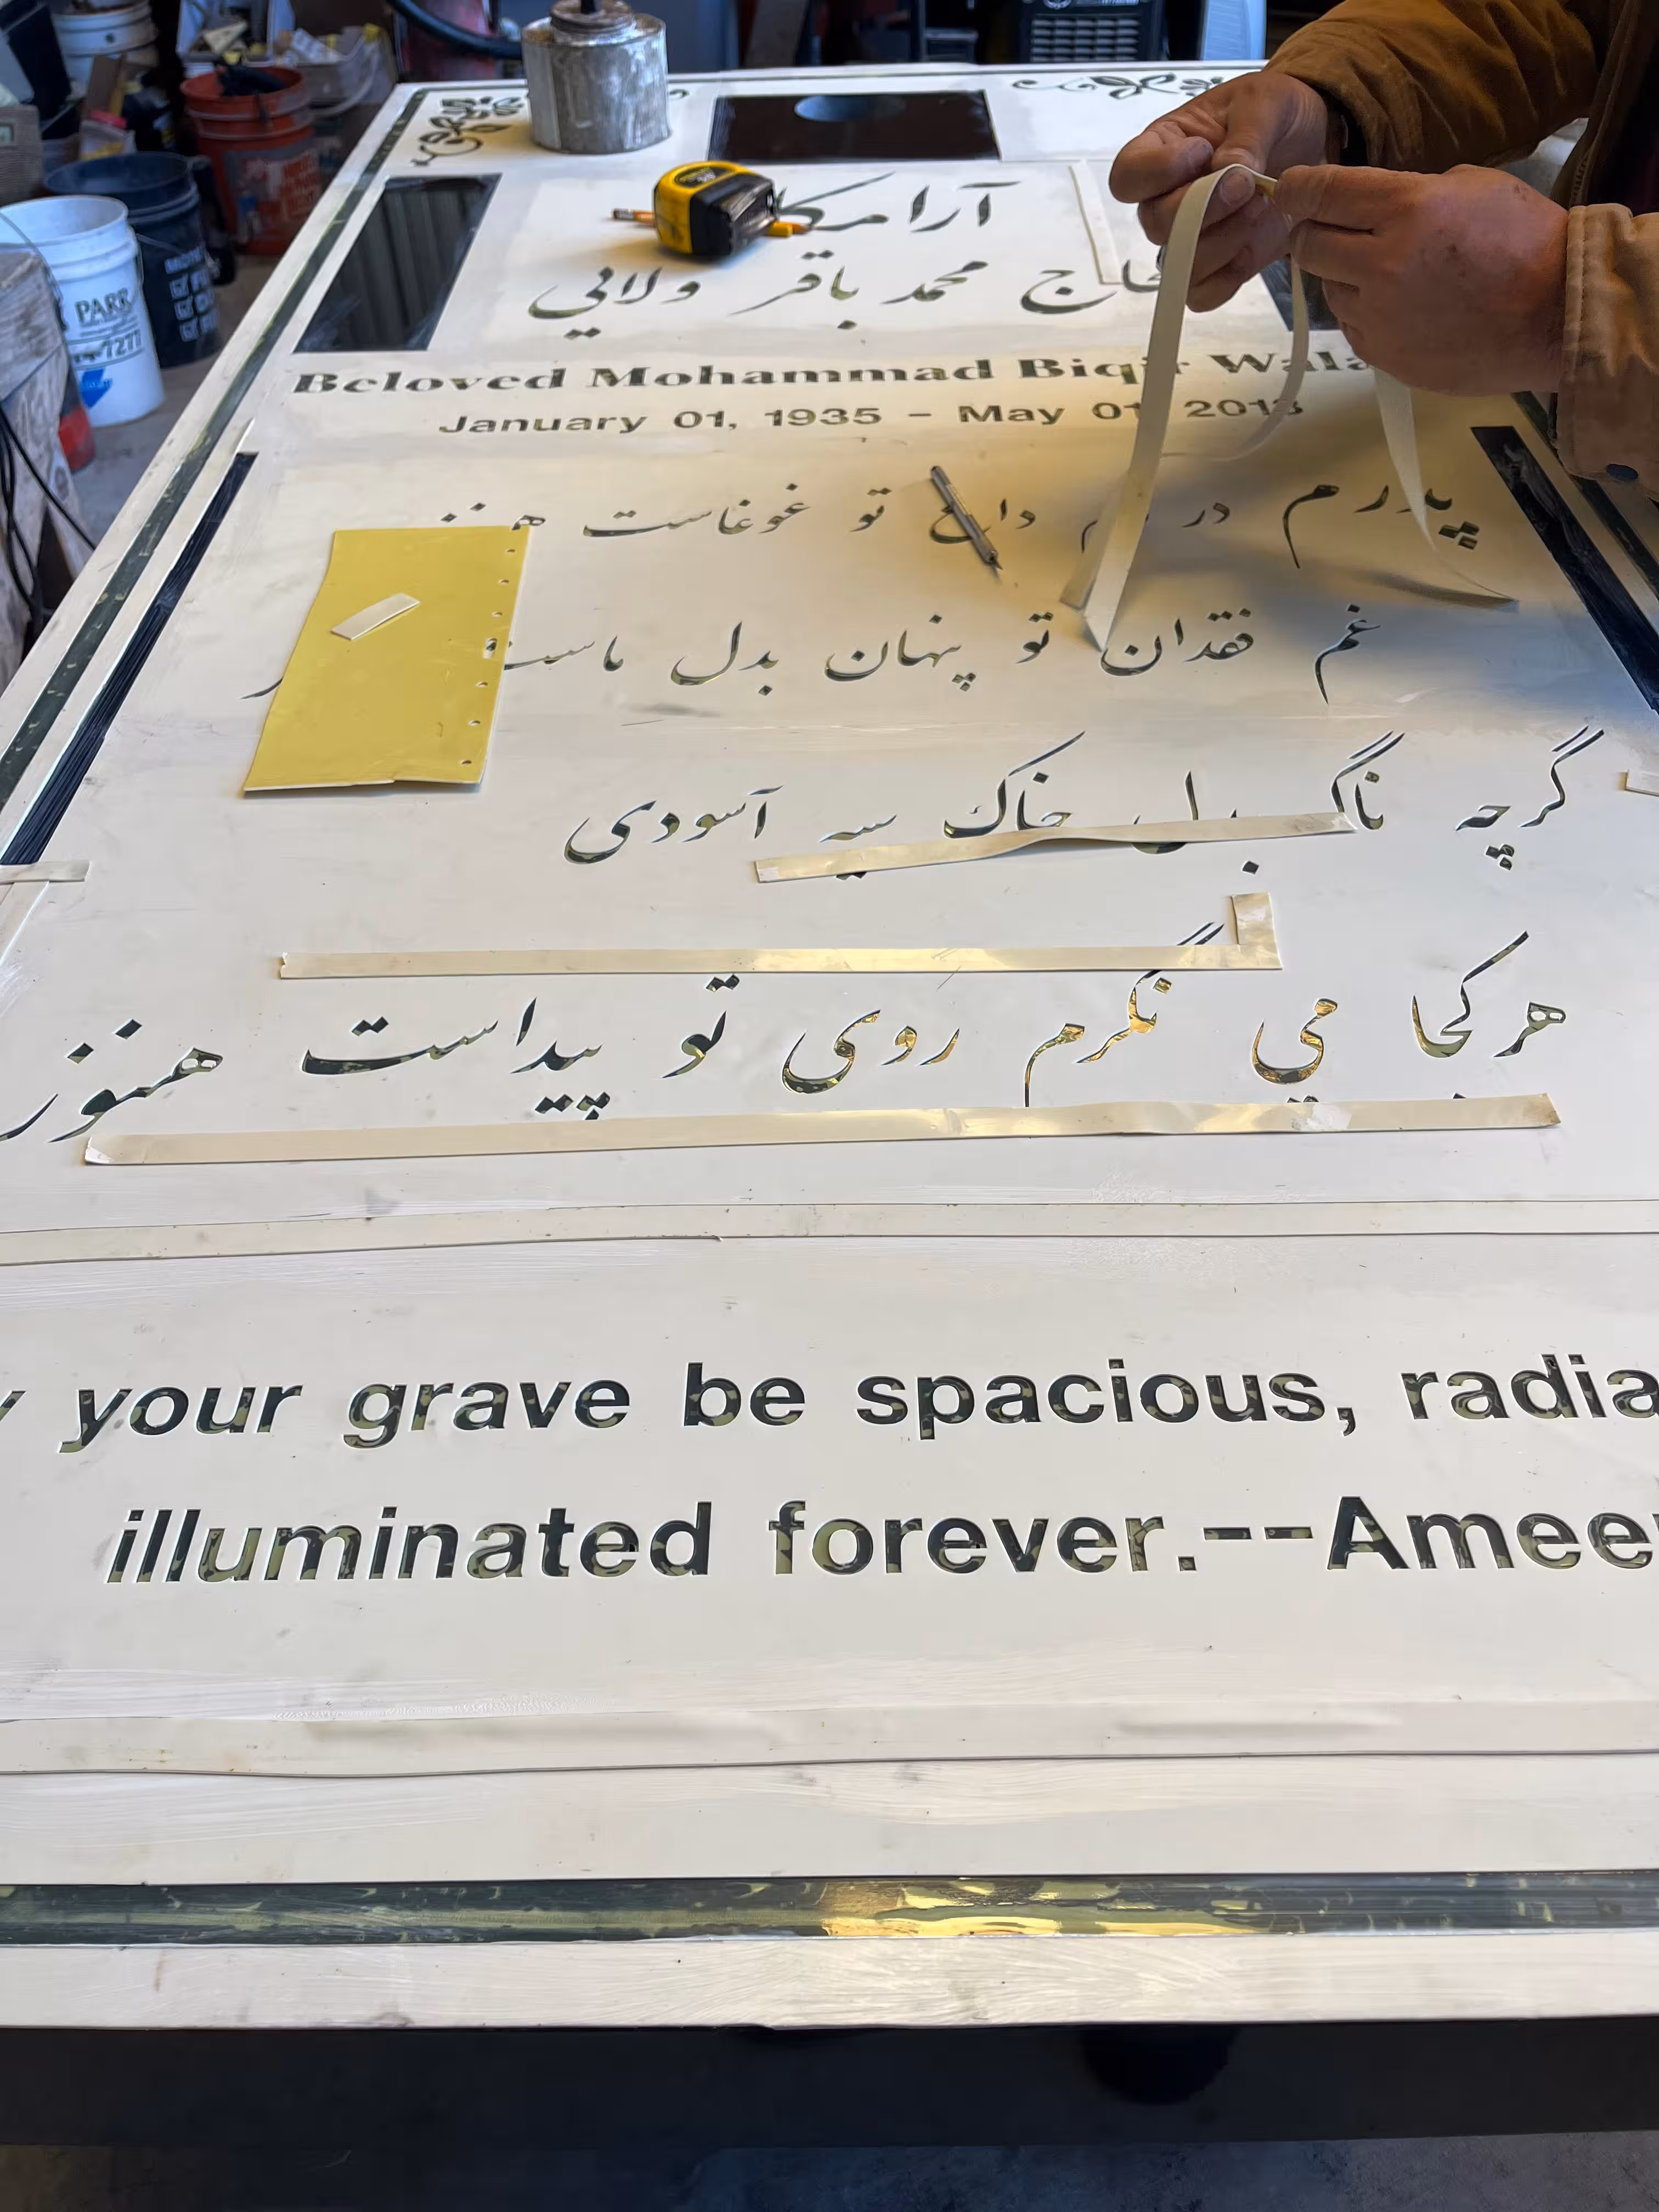 آرامگاه
حاج محمد باقر ولائي
Beloved Mohammad Biqir Wala
January 01, 1935 - May 01 2013
پدرم در داغ تو غوغاست هنوز
غم فقدان تو پنهان بدل ماست
گرچه بدل خاک سیه آسودی
هرکجا می نگرم روی تو پیداست هنوز
your grave be spacious, radia
illuminated forever.--Amee
PARR
7277